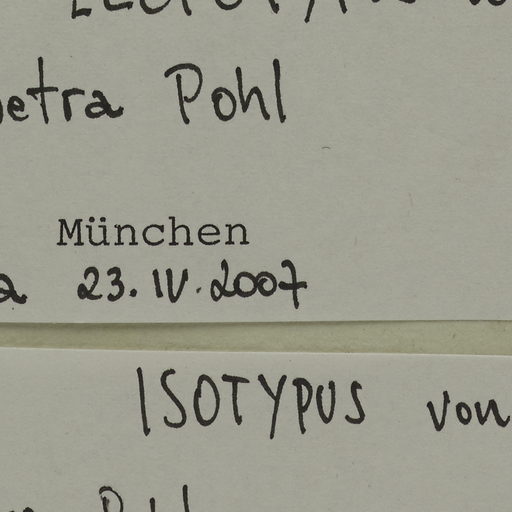 etra Pohl
München
a 23.IV.2007
ISOTYPUS von